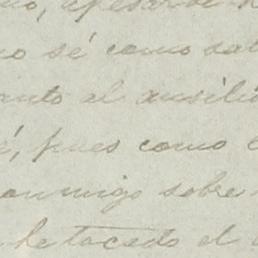 apesar de
no sé como sal
anto al ausili
é, pues como e
conmigo sobre
he tocado el